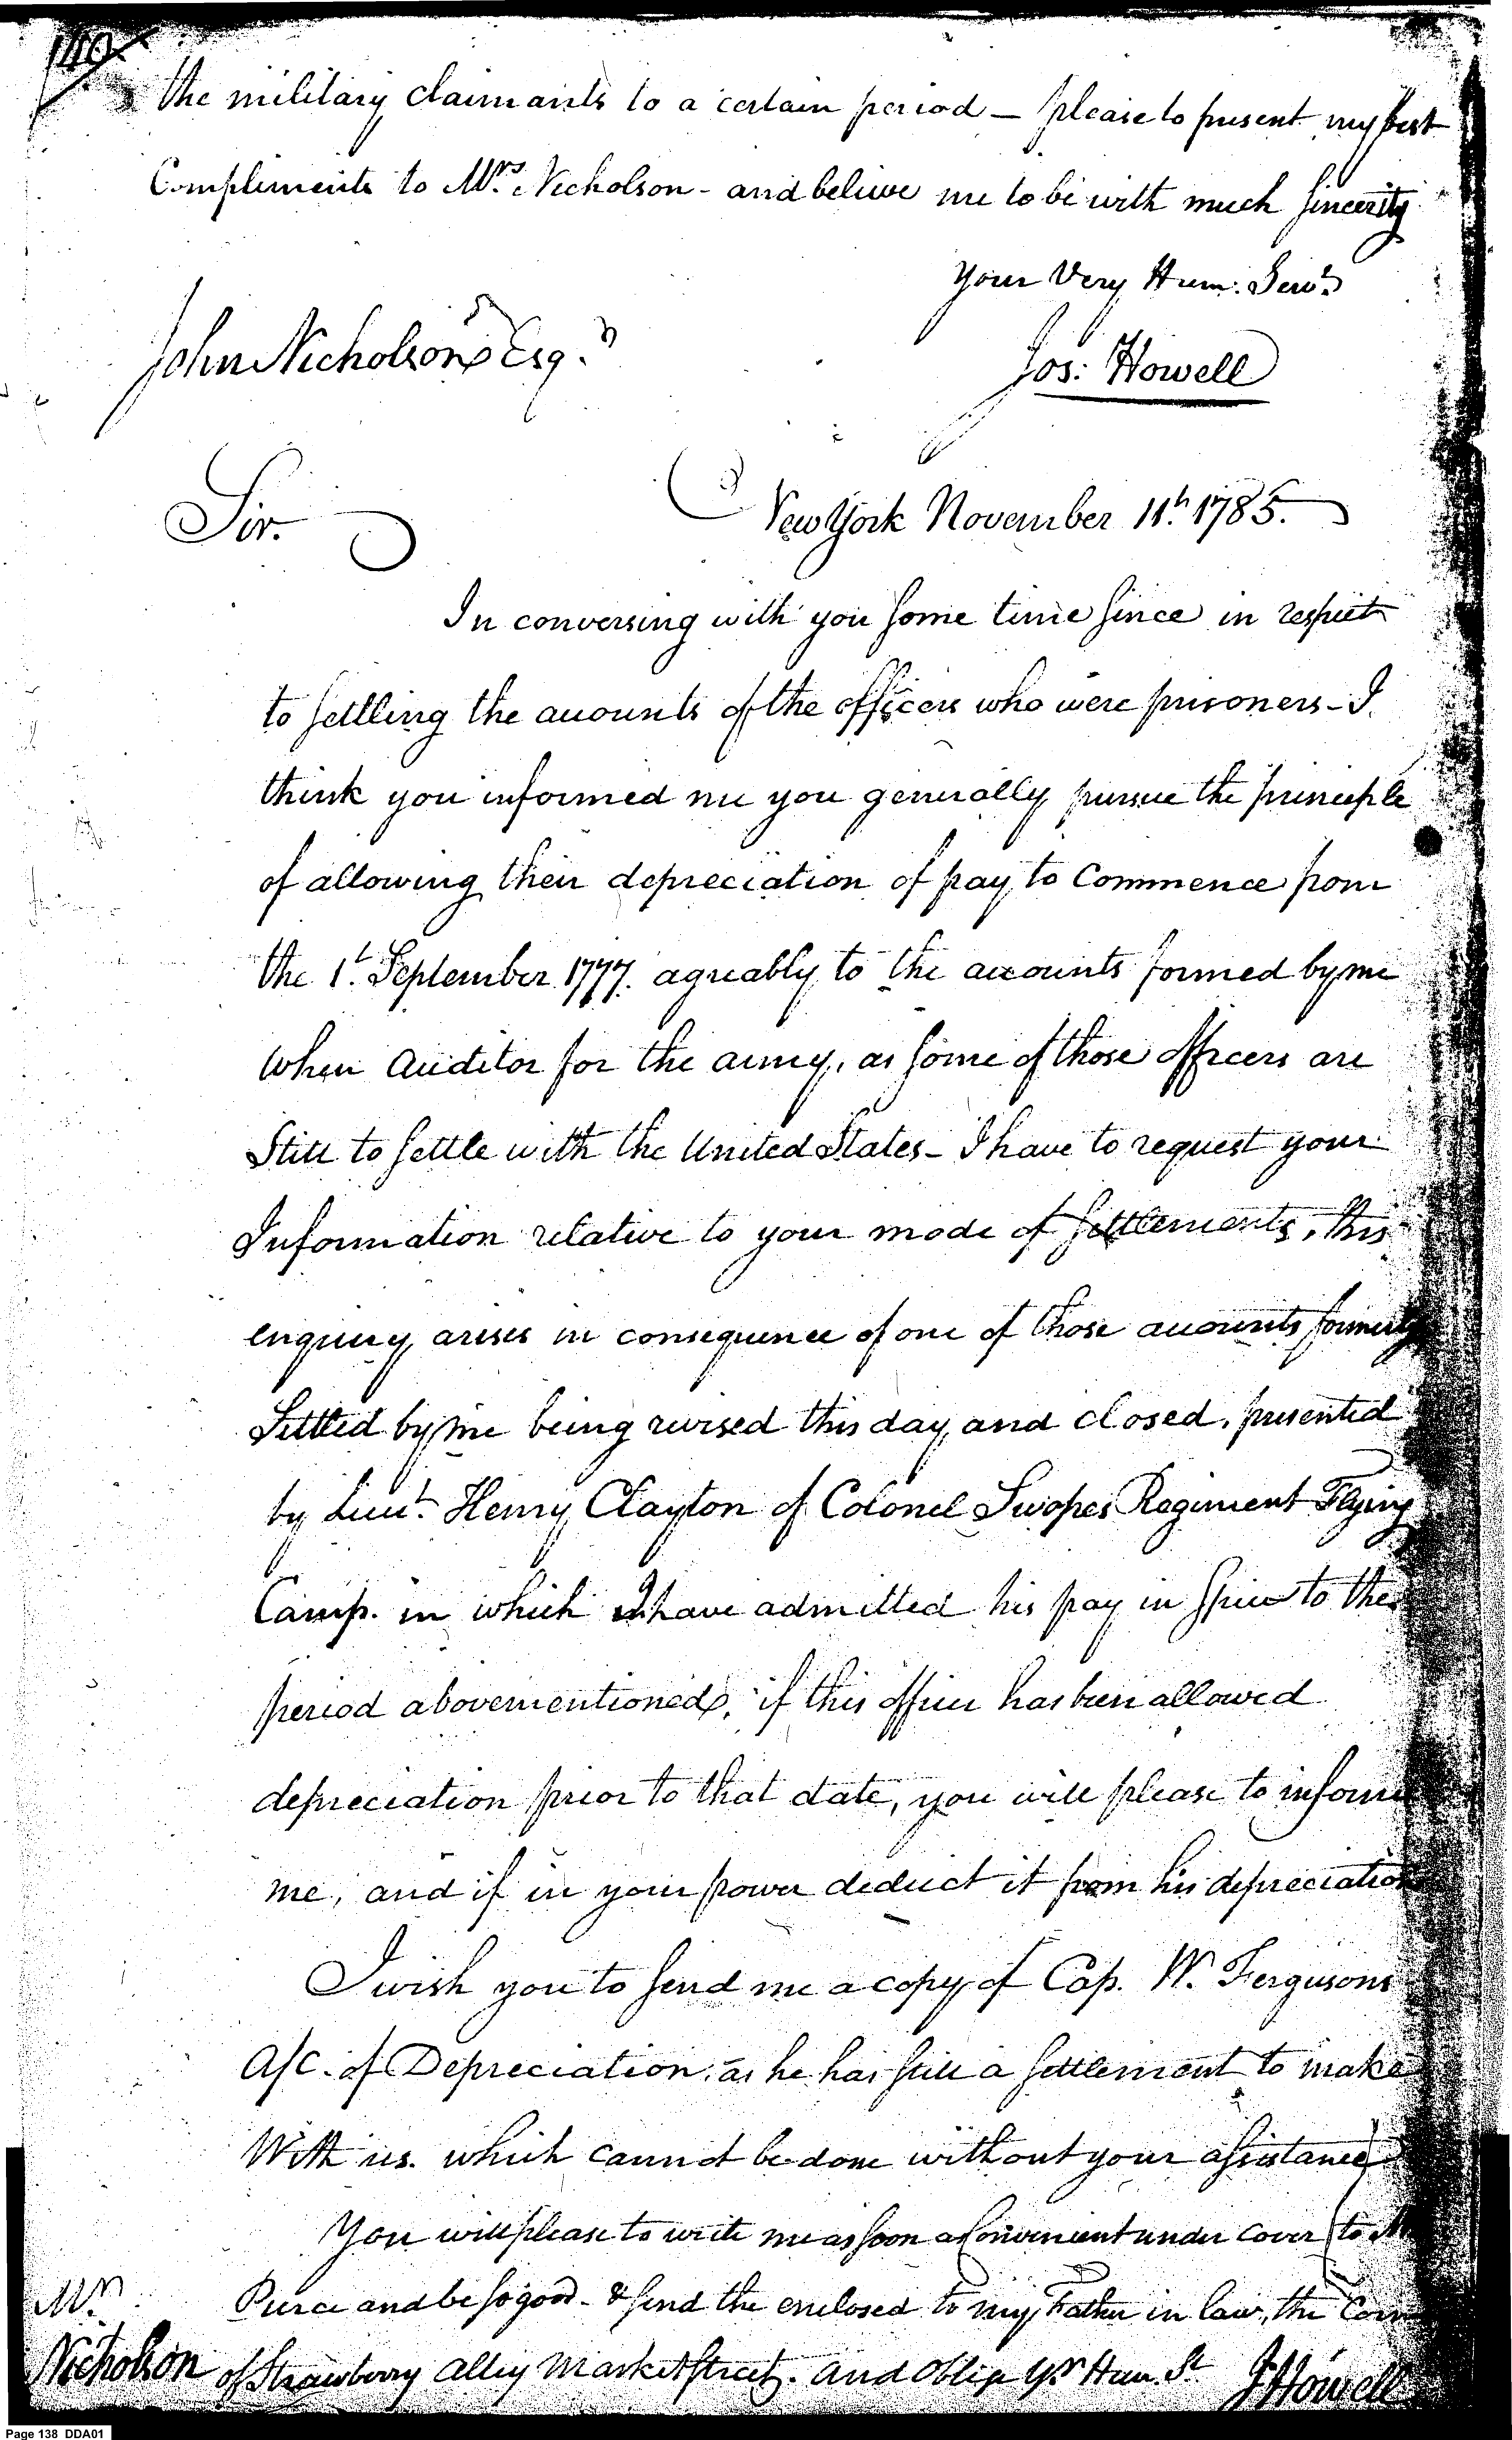 140
the military claimants to a certain period — please to present my best
Compliments to Mrs. Nicholson - and believe me to be with much sincerity
Your Very Hum: Servt.
John Nicholson Esqr.
Jos: Howell
New York November 11th. 1785.
Sir.
In conversing with you some time since in respect
to settling the accounts of the officers who were prisoners - I
think you informed me you generally pursue the principle
of allowing their depreciation of pay to Commence from
the 1t. September 1777. agreably to the accounts formed by me
when Auditor for the army, as some of those officers are
Still to settle with the United States - I have to request your
Information relative to your mode of settlements, this
enquiry arises in consequence of one of those accounts formerly
Settled by me being revised this day and closed, presented
by Lieut. Henry Clayton of Colonel Swopes Regiment Flying
Camp. in which I have admitted his pay in specie to the
period abovementioned, if this officer has been allowed
depreciation prior to that date, you will please to inform
me, and if in your power deduct it from his depreciation
I wish you to send me a copy of Cap. W. Fergusons
A/C. of Depreciation, as he has still a settlement to make
With us. which cannot be done without your assistance
You will please to write me as soon as Convenient under cover to Mr
Pierce and be so good - & send the enclosed to my Father in law, the Corn
of Strawberry Alley Market Street. and Oblige Yr Hum. St
J Howell
Mr.
Nicholson
Page 138 DDA01